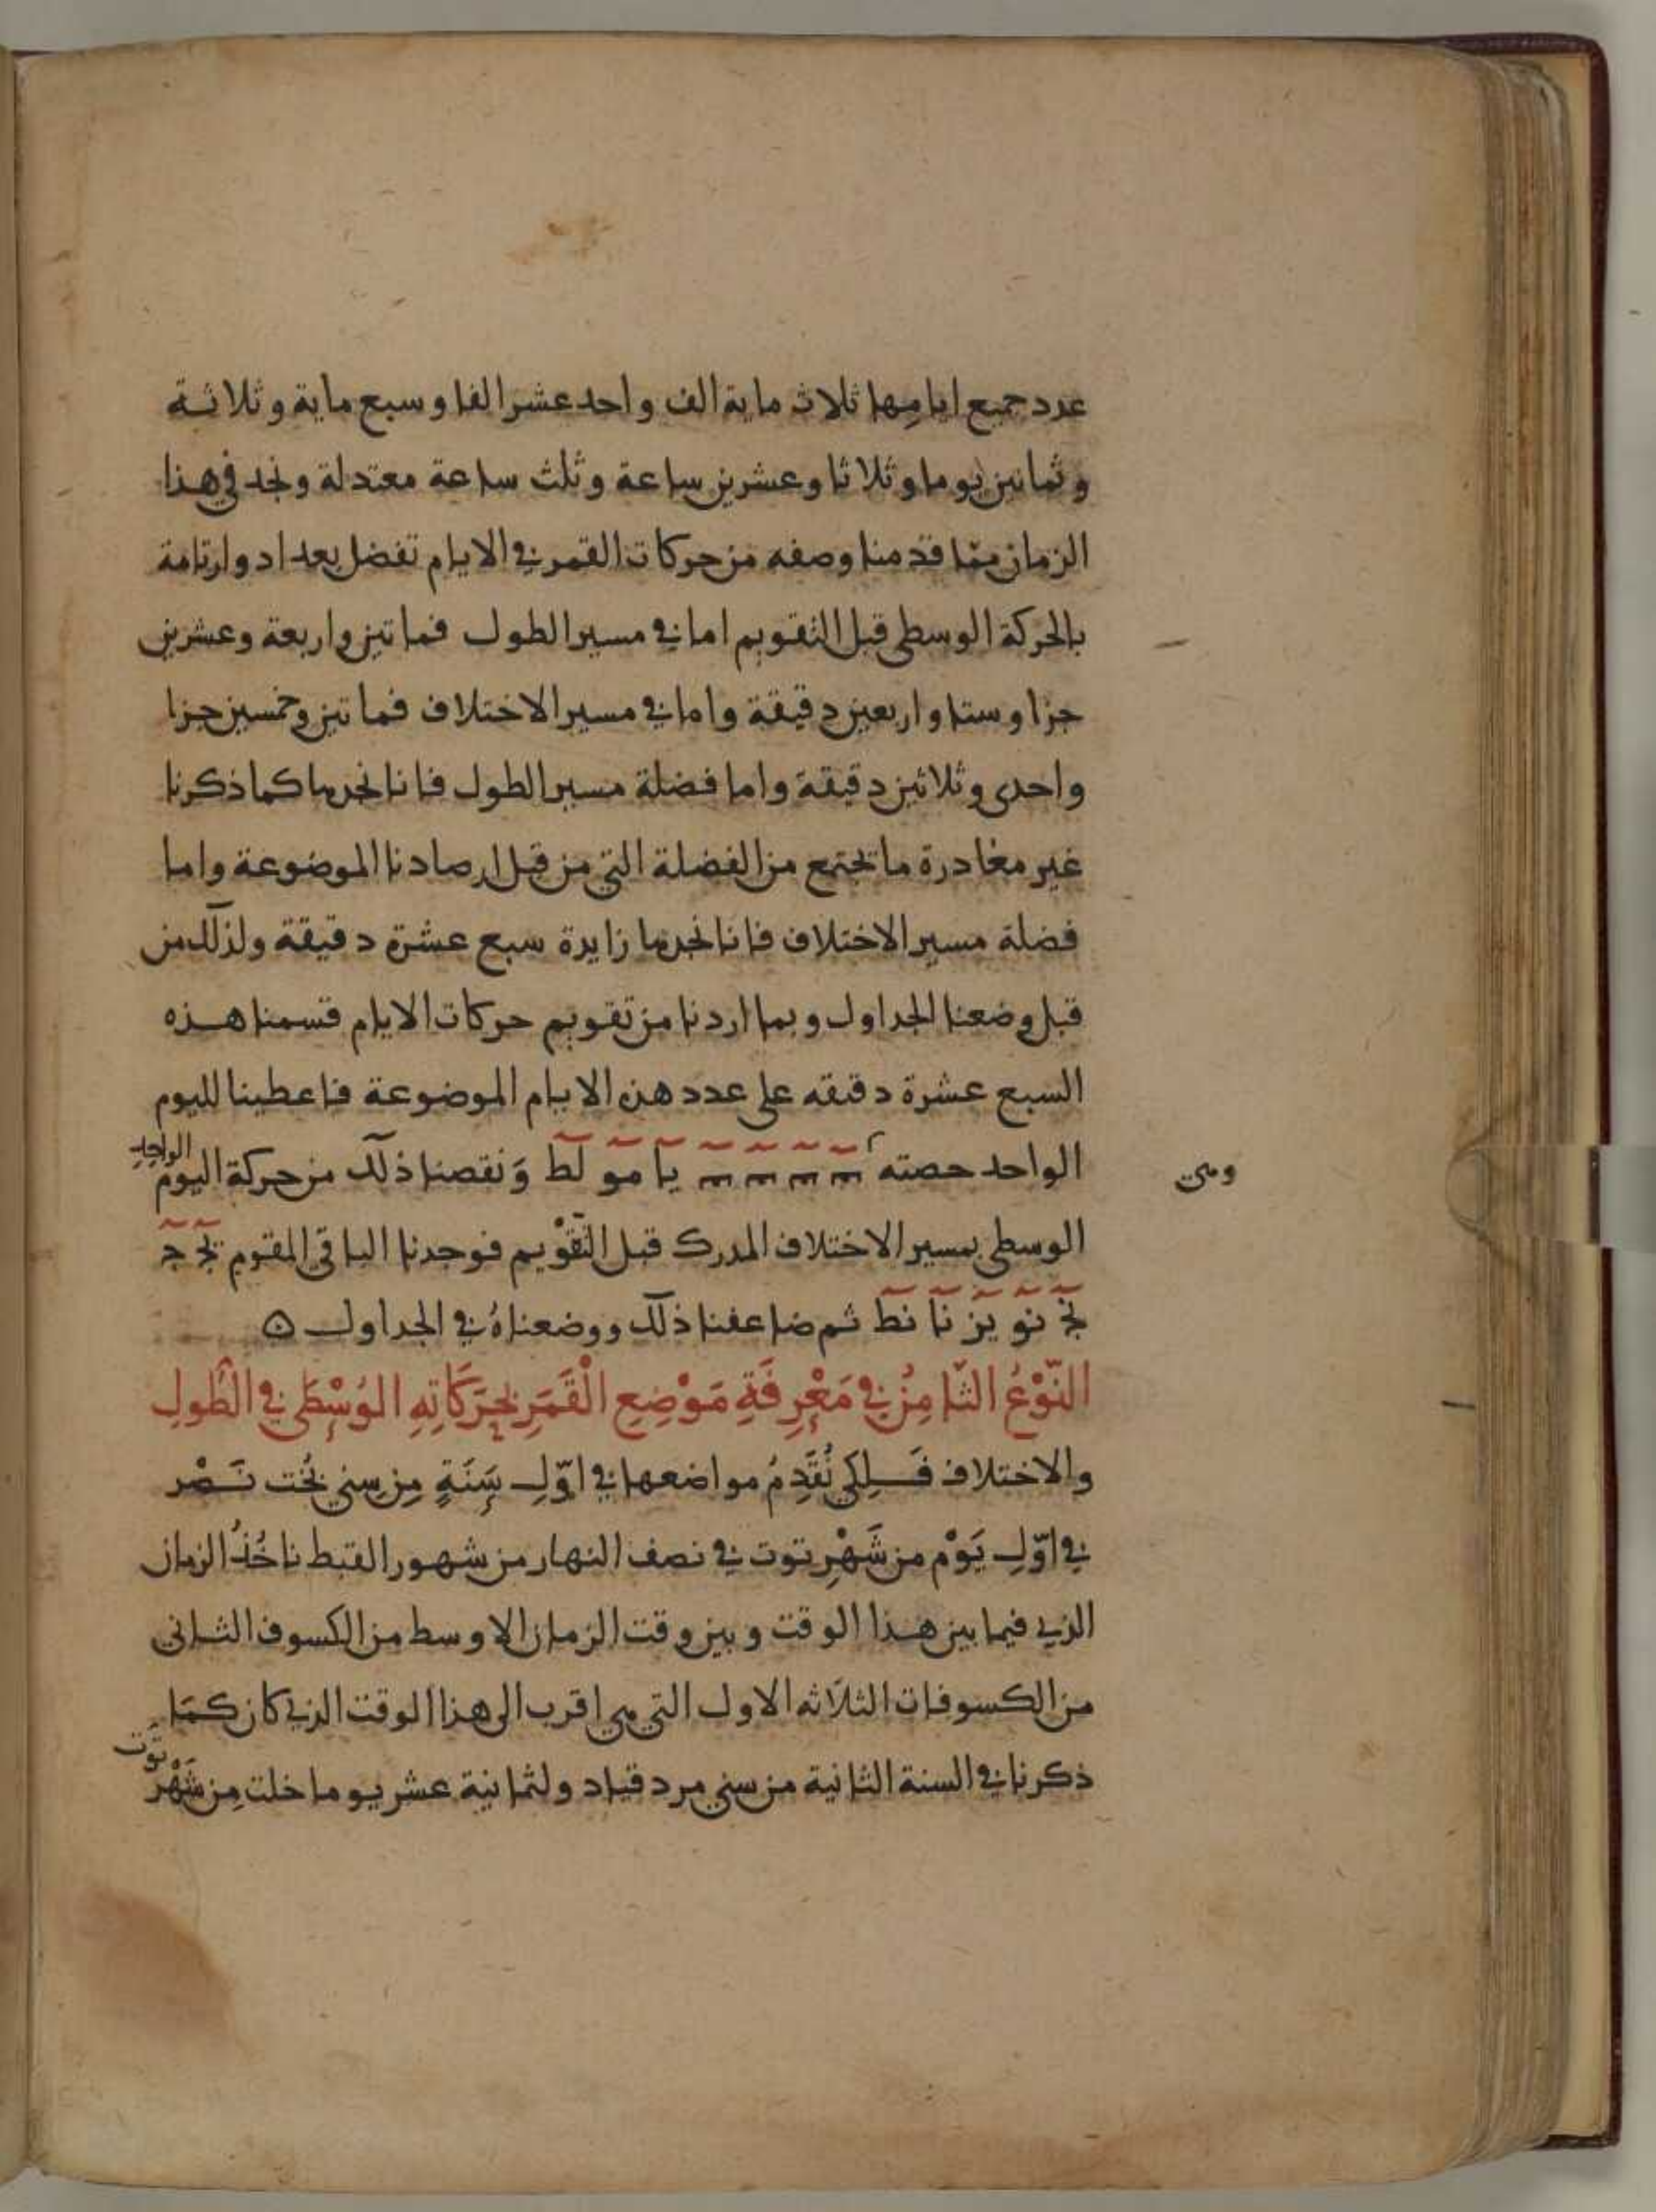 عدد جميع ايامها ثلاث ماية الف واحد عشر الفا وسبع ماية وثلاثة
وثمانين يوما وثلاثا وعشرين ساعة وثلث ساعة معتدلة ونجد في هذا
الزمان مما قدمنا وصفه من حركات القمر في الايام تفضل بعد ادوار تامة
بالحركة الوسطى قبل التقويم اما في مسير الطول فماتين واربعة وعشرين
جزا وستا واربعين دقيقة واما في مسير الاختلاف فماتين وخمسين جزا
واحدى وثلاثين دقيقة واما فضلة مسير الطول فانا نجدها كما ذكرنا
غير مغادرة ما تجتمع من الفضلة التي من قبل ارصادنا الموضوعة واما
فضلة مسير الاختلاف فانا نجدها زايدة سبع عشرة دقيقة ولذلك من
قبل وضعنا الجداول وبما اردنا من تقويم حركات الايام قسمنا هذه
السبع عشرة دقيقه على عدد هذه الايام الموضوعة فاعطينا لليوم
الواحد حصته يا مو لط وَنقصنا ذلك من حركة اليوم الواحِدِ
ومى
الوسطى بمسير الاختلاف المدرك قبل التَّقْويم فوجدنا الباقي المقوم يج ج
نج نو يز نا نط ثم ضاعفنا ذلك ووضعناهُ في الجداول ه
النَّوْعُ الثَّامِنُ في مَعْرِفَةِ مَوْضِعِ الْقَمَرِ بِحَرَكَاتِهِ الوُسْطَى في الطُولِ
والاختلاف فَلِكَى نُقَدِمُ مواضعها في اوّلِ سَنَةٍ مِن سِنى بُخت نَصْر
في اوّلِ يَوْم من شَهْرِ توت في نصف النهار من شهور القبط ناخُذُ الزمان
الذي فيما بين هذا الوقت وبين وقت الزمان الاوسط من الكسوف الثانى
من الكسوفات الثلاثه الاول التي هي اقرب الى هذا الوقت الذي كان كمَا
ذكرنا في السنة الثانية من سني مردقياد ولثمانية عشر يوما خلت مِن شَهْرِ تَوُت